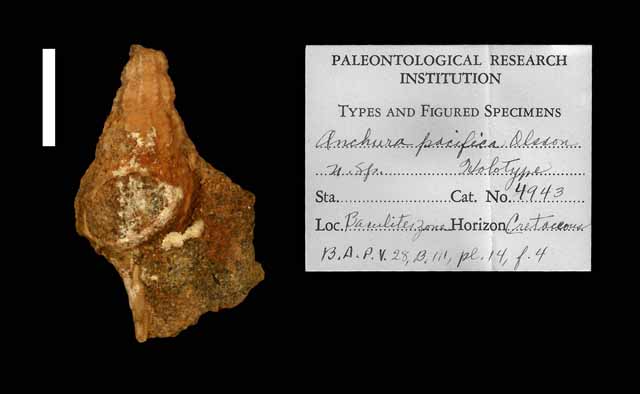 PALEONTOLOGICAL RESEARCH
INSTITUTION
TYPES AND FIGURED SPECIMENS
Anchura pacifica Olsson
n. sp. Holotype
Sta. Cat. No. 4943
Loc. Baculites zone Horizon Cretaceous
B.A.P. V. 28, B. 111, pl. 14, f. 4